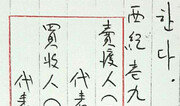 한다.
西紀壱九
賣渡人(
代表
買收人(
代表